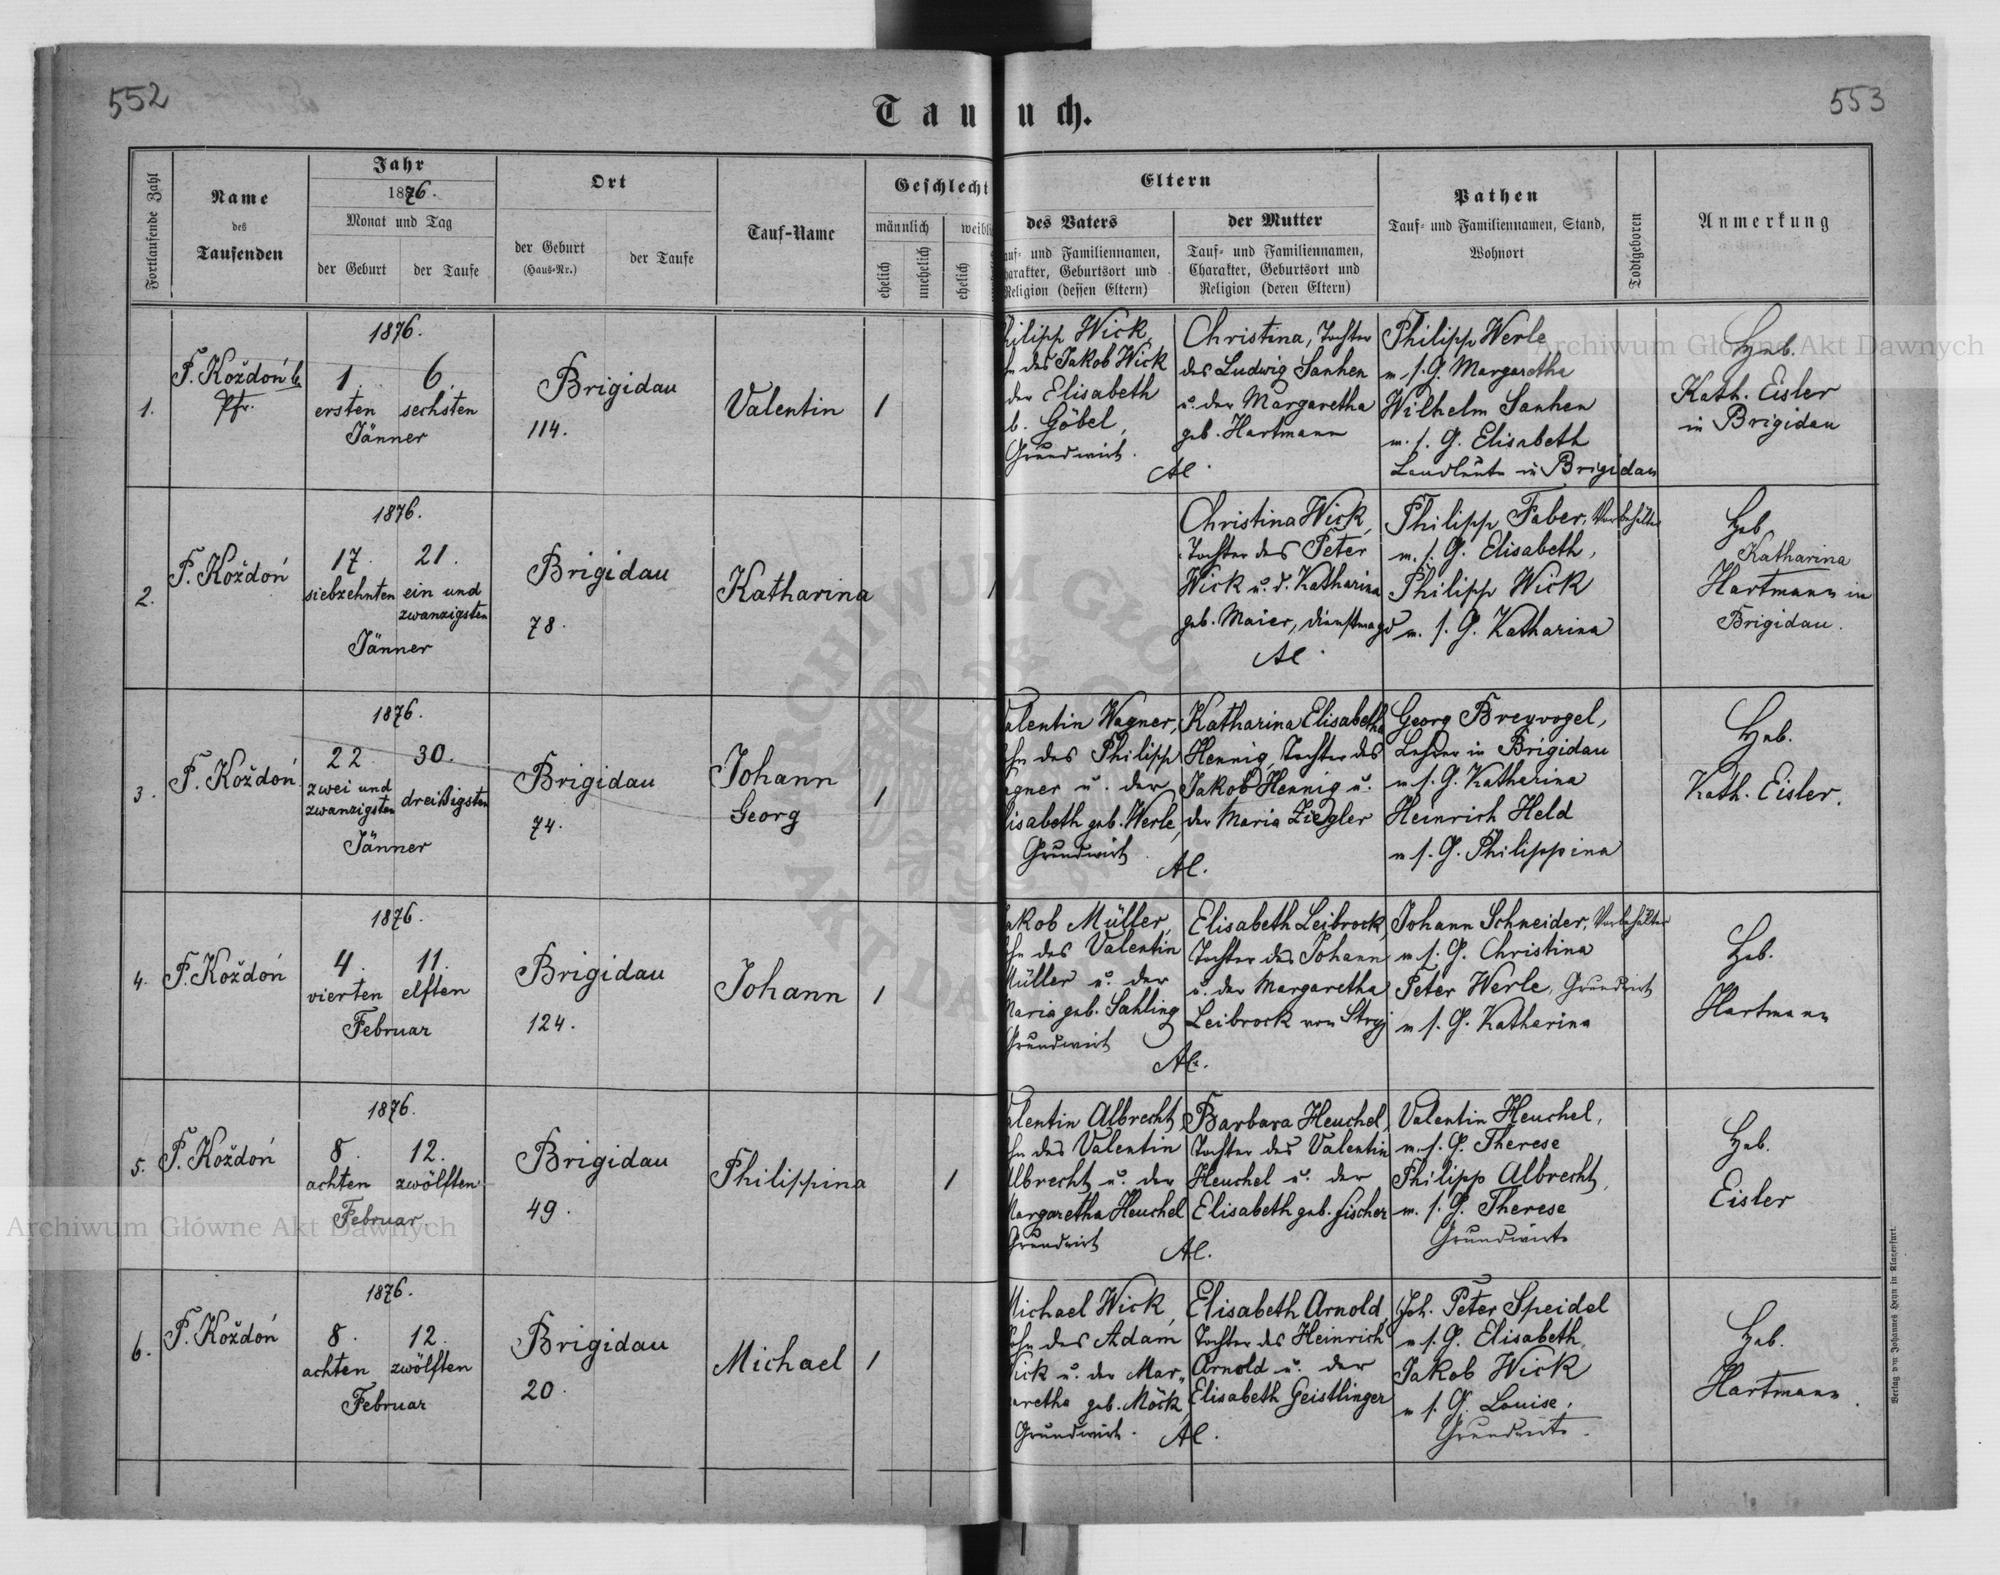 552
553
Tau uch.
Fortlaufende Zahl
Name
des
Taufenden
Jahr
1876.
Monat und Tag
der Geburt
der Taufe
Ort
der Geburt
(Haus-Nr.)
der Taufe
Tauf-Name
Geschlecht
männlich
weibli
ehelich
unehelich
ehelich
Eltern
des Vaters
auf- und Familiennamen,
harakter, Geburtsort und
Religion (dessen Eltern)
der Mutter
Tauf- und Familiennamen,
Charakter, Geburtsort und
Religion (deren Eltern)
Pathen
Tauf- und Familiennamen, Stand,
Wohnort
Todtgeboren
Anmerkung
1.
F. Koždoń
Pfr.
1876.
1. 6.
ersten sechsten
Jänner
Brigidau
114.
Valentin
1
hilipp Wick,
des Jakob Wick
der Elisabeth
b. Göbel,
Grundwirt.
Al.
Christina, Tochter
des Ludwig Sanhen
u. der Margaretha
geb. Hartmann
Philipp Werle
m. s. G. Margaretha
Wilhelm Sanhen
m. s. G. Elisabeth
Landleute in Brigidau
Heb.
Kath. Eisler
in Brigidau
2.
F. Koždoń
1876.
17. 21.
siebzehnten ein und
zwanzigsten
Jänner
Brigidau
78.
Katharina
1
Christina Wick,
Tochter des Peter
Wick u. d. Katharina
geb. Maier, Dienstmagd
Al.
Philipp Faber, Vorbehälter
m. s. G. Elisabeth,
Philipp Wick
m. s. G. Katharina
Heb.
Katharina
Hartmann in
Brigidau.
3.
F. Koždoń
1876.
22. 30.
zwei und
zwanzigsten dreißigsten
Jänner
Brigidau
74.
Johann
Georg
1
alentin Wagner,
hn des Philipp
agner u. der
lisabeth geb. Werle,
Grundwirt.
Al.
Katharina Elisabetha
Hennig, Tochter des
Jakob Hennig u.
der Maria Ziegler
Georg Breyvogel,
Lehrer in Brigidau
m s. G. Katharina
Heinrich Held
m s. G. Philippina
Heb.
Kath. Eisler.
4.
F. Koždoń
1876.
4. 11.
vierten elften
Februar
Brigidau
124.
Johann
1
akob Müller,
hn des Valentin
Müller u. der
Maria geb. Sahling
Grundwirt
Al.
Elisabeth Leibrock,
Tochter des Johann
u. der Margaretha
Leibrock von Stryj
Johann Schneider, Vorbehälter
m s. G. Christina
Peter Werle, Grundwirt
m s. G. Katharina
Heb.
Hartmann
5.
F. Koždoń
1876.
8. 12.
achten zwölften
Februar
Brigidau
49.
Philippina
1
alentin Albrecht,
hn des Valentin
Albrecht u. der
Margaretha Heuchel
Grundwirt
Al.
Barbara Heuchel,
Tochter des Valentin
Heuchel u. der
Elisabeth geb. Fischer
Valentin Heuchel,
m. s. G. Therese
Philipp Albrecht,
m. s. G. Therese
Grundwirte
Heb.
Eisler
6.
F. Koždoń
1876.
8. 12.
achten zwölften
Februar
Brigidau
20.
Michael
1
Michael Wick,
ohn des Adam
Wick u. der Mar-
garetha geb. Möck,
Grundwirt.
Al.
Elisabeth Arnold,
Tochter des Heinrich
Arnold u. der
Elisabeth Geistlinger
Joh. Peter Speidel
m s. G. Elisabeth,
Jakob Wick
m s. G. Louise,
Grundwirte.
Heb.
Hartmann
Verlag von Johannes Heyn in Klagenfurt.
Archiwum Główne Akt Dawnych
Archiwum Główne Akt Dawnych